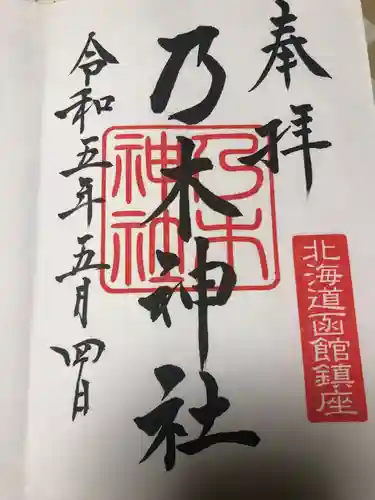 奉拝
北海道函館鎮座
乃木神社
乃木
神社
令和五年五月四日